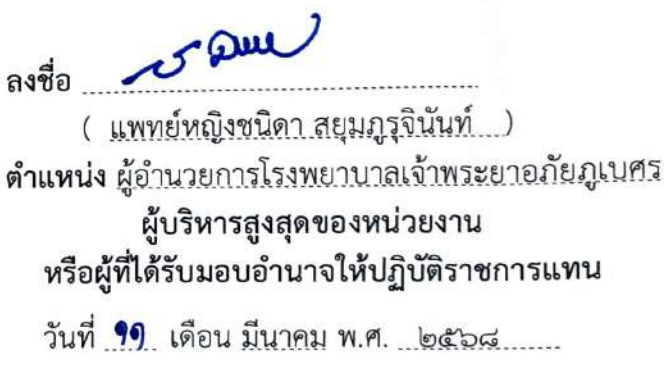 ลงชื่อ
( แพทย์หญิงชนิดา สยุมภูรุจินันท์ )
ตำแหน่ง ผู้อำนวยการโรงพยาบาลเจ้าพระยาอภัยภูเบศร
ผู้บริหารสูงสุดของหน่วยงาน
หรือผู้ที่ได้รับมอบอำนาจให้ปฏิบัติราชการแทน
วันที่ ๑๑ เดือน มีนาคม พ.ศ. ๒๕๖๘